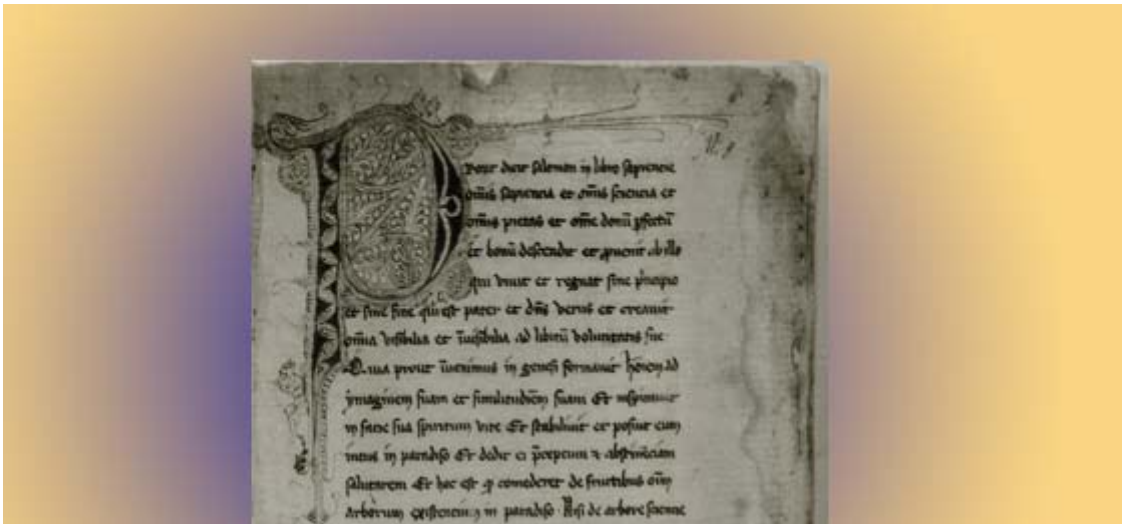 Prout dicit Salomon in libro sapiencie
omīs sapiencia et omīs sciencia et
omīs pietas et omē donū pfectū
et bonū descendit et puenit ab illo
qui viuit et regnat sine pncipio
et sine fine qui est pater et dns verus et creauit
omīa visibilia et īuisibilia ad libitū voluntatis sue
Qui a prout īuenimus in genesi formauit hoīem ad
ymaginem suam et similitudiēm suam Et inspirauit
in facie sua spiritum vite Et stabiliuit et posuit eum
intus in paradiso Et dedit ei pceptum ⁊ abstinēciam
salutarem Et hec est ꝙ comederet de fructibus oīm
arborum existencium in paradiso Nisi de arbore sciencie